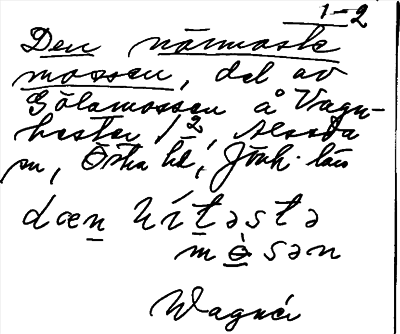 1-2
Den närmaste
mossen, del av
Gölamossen å Vagn-
hester 1/2, Alseda
sn, Östra hd, Jönk. län
dæn nítəstə
mòsən
Wagner